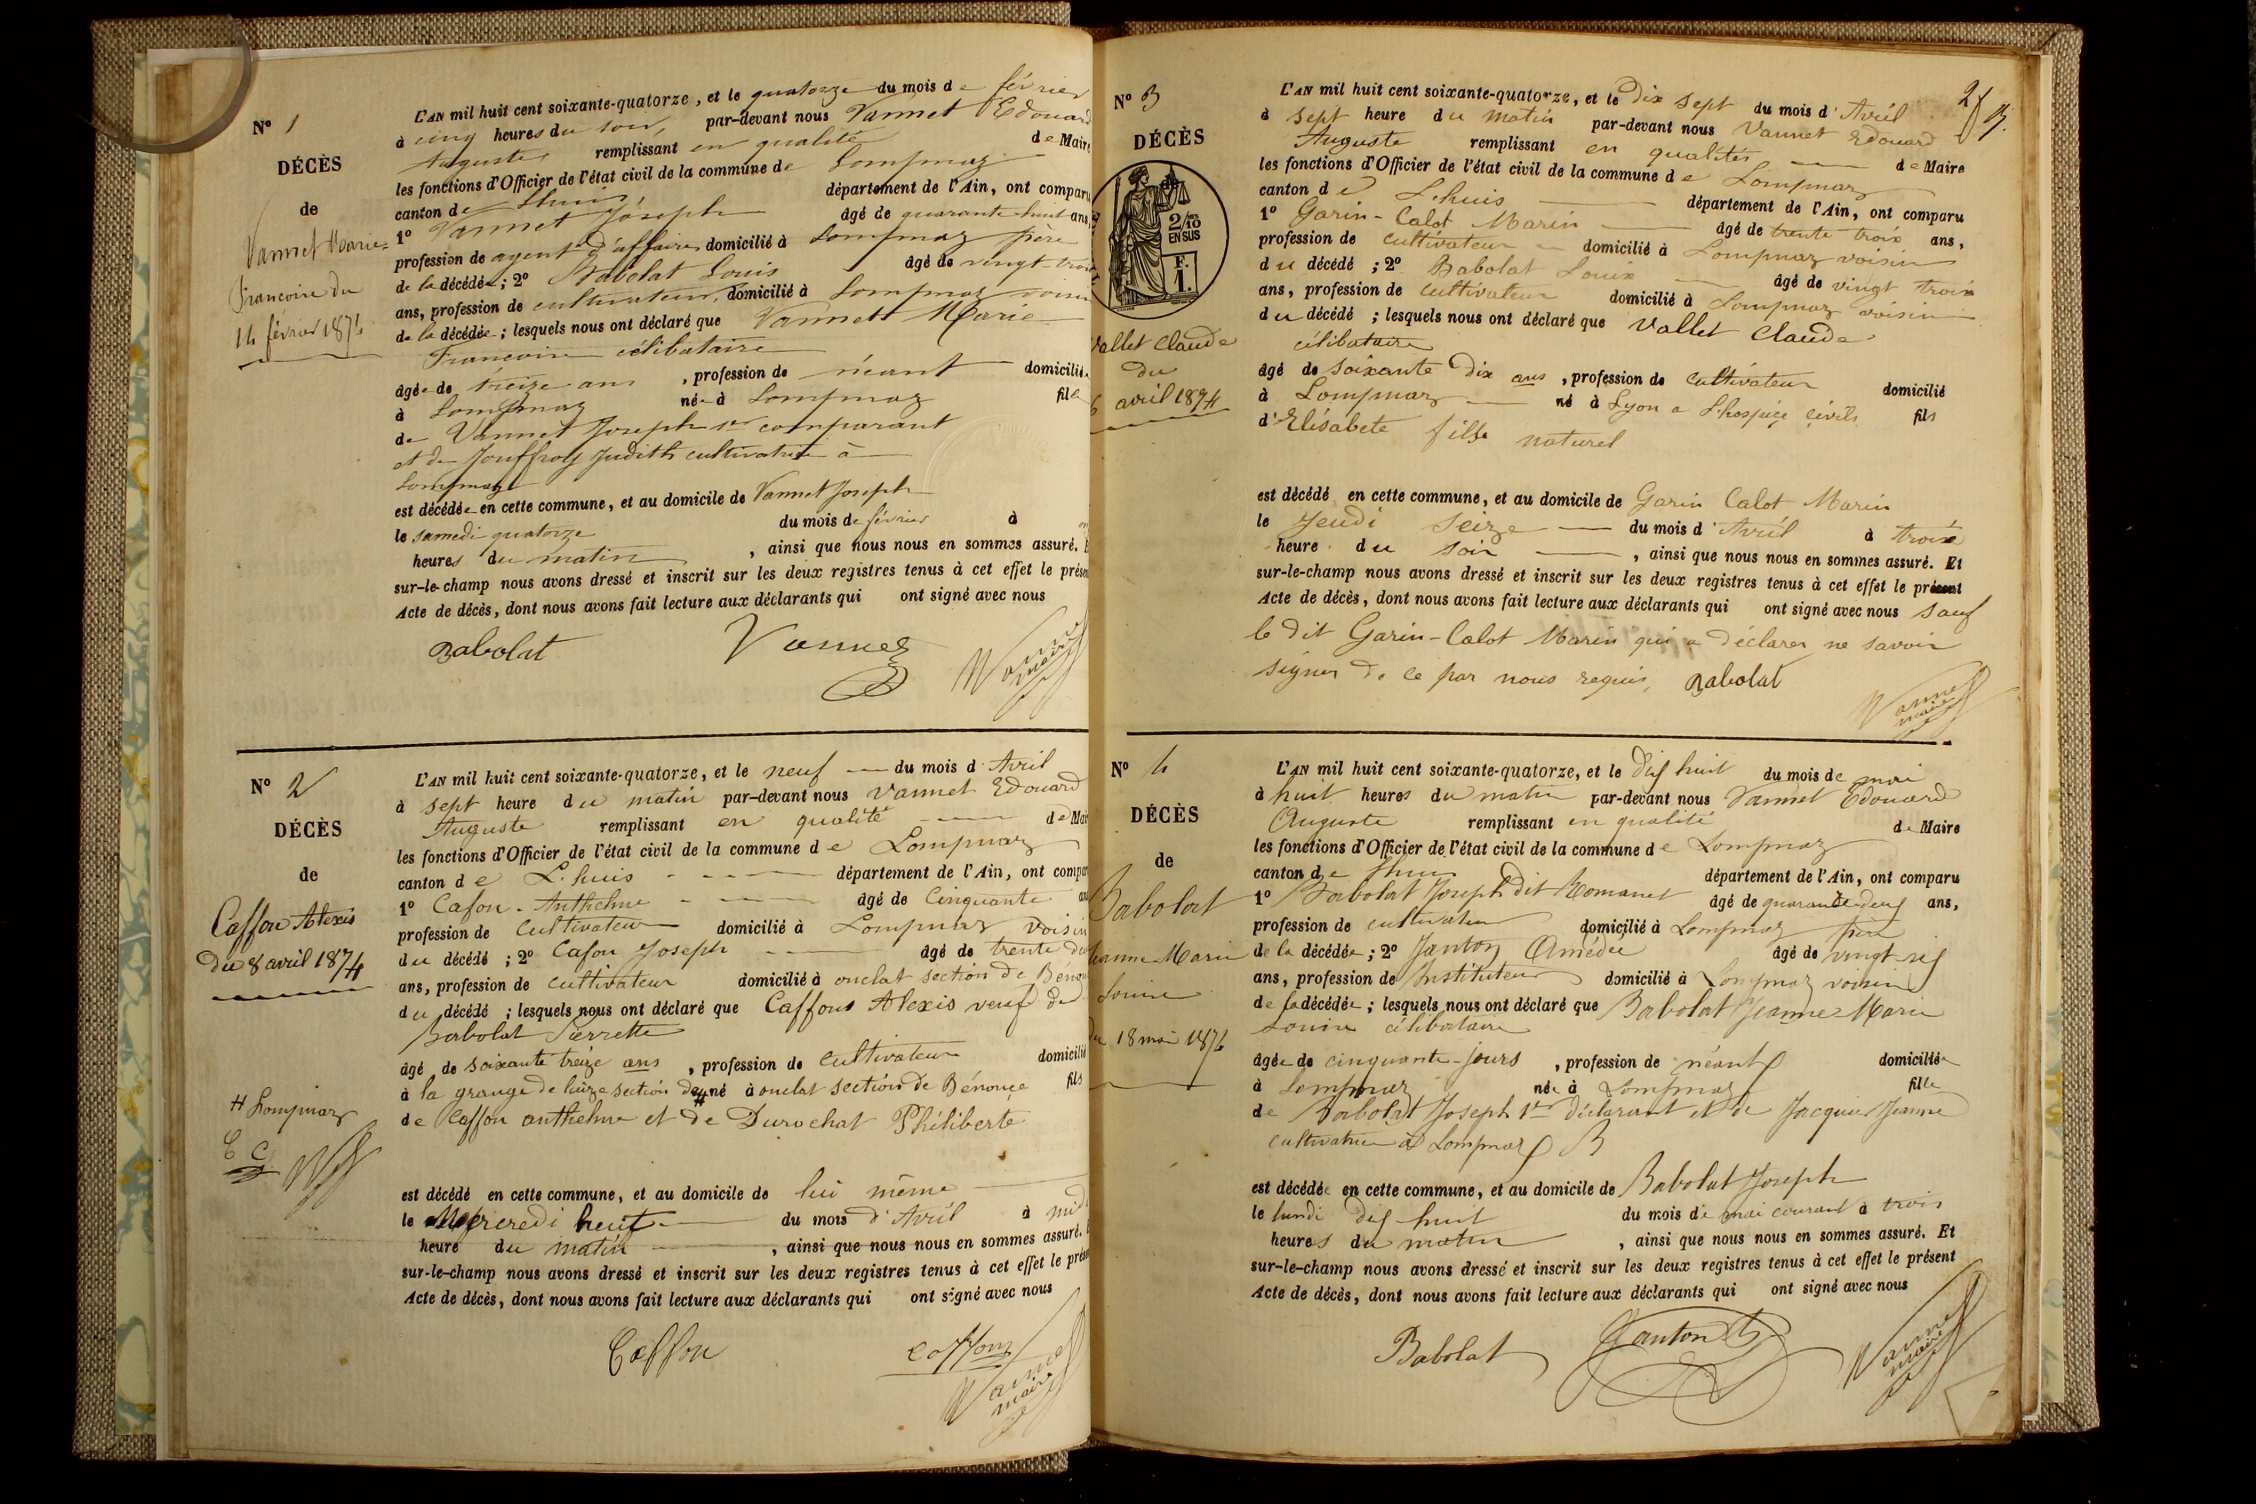 N° 1
DÉCÈS
de
Vannet Marie
Françoise du
14 février 1874
L'AN mil huit cent soixante-quatorze, et le quatorze du mois de février
à cinq heures du soir, par-devant nous Vannet Edouard
Auguste remplissant en qualité de Maire
les fonctions d'Officier de l'état civil de la commune de Lompnaz
canton de Lhuis département de l'Ain, ont comparu
1° Vannet Joseph âgé de quarante-huit ans,
profession de agent d'affaires domicilié à Lompnaz père
de la décédée; 2° Babolat Louis âgé de vingt-trois
ans, profession de cultivateur, domicilié à Lompnaz voisin
de la décédée; lesquels nous ont déclaré que Vannet Marie
Françoise célibataire
âgée de treize ans, profession de néant domiciliée
à Lompnaz née à Lompnaz fille
de Vannet Joseph 1er comparant
et de Jouffroy Judith cultivatrice à
Lompnaz
est décédée en cette commune, et au domicile de Vannet Joseph
le samedi quatorze du mois de février à
heures du matin, ainsi que nous nous en sommes assuré. E
sur-le-champ nous avons dressé et inscrit sur les deux registres tenus à cet effet le présen
Acte de décès, dont nous avons fait lecture aux déclarants qui ont signé avec nous
Babolat Vannet Vannet
maire
N° 2
DÉCÈS
de
Caffon Alexis
du 8 avril 1874
# Lompnaz
C C
L'AN mil huit cent soixante-quatorze, et le neuf du mois d'Avril
à sept heure du matin par-devant nous Vannet Edouard
Auguste remplissant en qualité de Mai
les fonctions d'Officier de l'état civil de la commune de Lompnaz
canton de L'huis département de l'Ain, ont compar
1° Cafon-Anthelme âgé de Cinquante an
profession de Cultivateur domicilié à Lompnaz voisin
du décédé; 2° Cafon Joseph âgé de trente
ans, profession de cultivateur domicilié à onclat section de Bénon
du décédé; lesquels nous ont déclaré que Caffons Alexis veuf de
Babolat Pierrette
âgé de soixante treize ans, profession de Cultivateur domicilié
à la grange de section de # né à onclat section de Bénonçe fils
de Caffon anthelme et de Durochat Philiberte
est décédé en cette commune, et au domicile de lui même
le Mercredi heuit du mois d'Avril à midi
heure du matin, ainsi que nous nous en sommes assuré. E
sur-le-champ nous avons dressé et inscrit sur les deux registres tenus à cet effet le prése
Acte de décès, dont nous avons fait lecture aux déclarants qui ont signé avec nous
Caffon caffon
Vannet
maire
N° 3
DÉCÈS
de
2/10
EN SUS
F.
1.
Vallet Claude
du
6 avril 1874
L'AN mil huit cent soixante-quatorze, et le dix sept du mois d'Avril
à sept heure du matin par-devant nous Vannet Edouard
Auguste remplissant en qualités de Maire
les fonctions d'Officier de l'état civil de la commune de Lompnaz
canton de L'huis département de l'Ain, ont comparu
1° Garin-Calot Marin âgé de trente trois ans,
profession de cultivateur domicilié à Lompnaz voisin
du décédé; 2° Babolat Louis âgé de vingt trois
ans, profession de cultivateur domicilié à Lompnaz voisin
du décédé; lesquels nous ont déclaré que Vallet Claude
célibataire
âgé de soixante dix ans, profession de cultivateur domicilié
à Lompnaz né à Lyon a l'hospice civils fils
d'Elisabete fille naturel
est décédé en cette commune, et au domicile de Garin Calot Marin
le Jeudi seize du mois d'Avril à trois
heure du soir, ainsi que nous nous en sommes assuré. Et
sur-le-champ nous avons dressé et inscrit sur les deux registres tenus à cet effet le présent
Acte de décès, dont nous avons fait lecture aux déclarants qui ont signé avec nous sauf
le dit Garin-Calot Marin qui a déclarer ne savoir
signer de ce par nous requis, Babolat
Vannet
maire
N° 4
DÉCÈS
de
Babolat
Jeanne Marie
Louise
du 18 mai 1874
L'AN mil huit cent soixante-quatorze, et le dix huit du mois de mai
à huit heures du matin par-devant nous Vannet Edouard
Auguste remplissant en qualité de Maire
les fonctions d'Officier de l'état civil de la commune de Lompnaz
canton de Lhuis département de l'Ain, ont comparu
1° Babolat Joseph dit Romanet âgé de quarante deux ans,
profession de cultivateur domicilié à Lompnaz père
de la décédée; 2° Janton Amédée âgé de vingt-six
ans, profession de Instituteur domicilié à Lompnaz voisin
de la décédée; lesquels nous ont déclaré que Babolat Jeanne Marie
Louise célibataire
âgée de cinquante-jours, profession de néant domiciliée
à Lompnaz née à Lompnaz fille
de Babolat Joseph 1er déclarant et de Jacquier Jeanne
cultivatrice à Lompnaz
est décédée en cette commune, et au domicile de Babolat Joseph
le lundi dix huit du mois de mai courant à trois
heures du matin, ainsi que nous nous en sommes assuré. Et
sur-le-champ nous avons dressé et inscrit sur les deux registres tenus à cet effet le présent
Acte de décès, dont nous avons fait lecture aux déclarants qui ont signé avec nous
Babolat Janton Vannet
maire